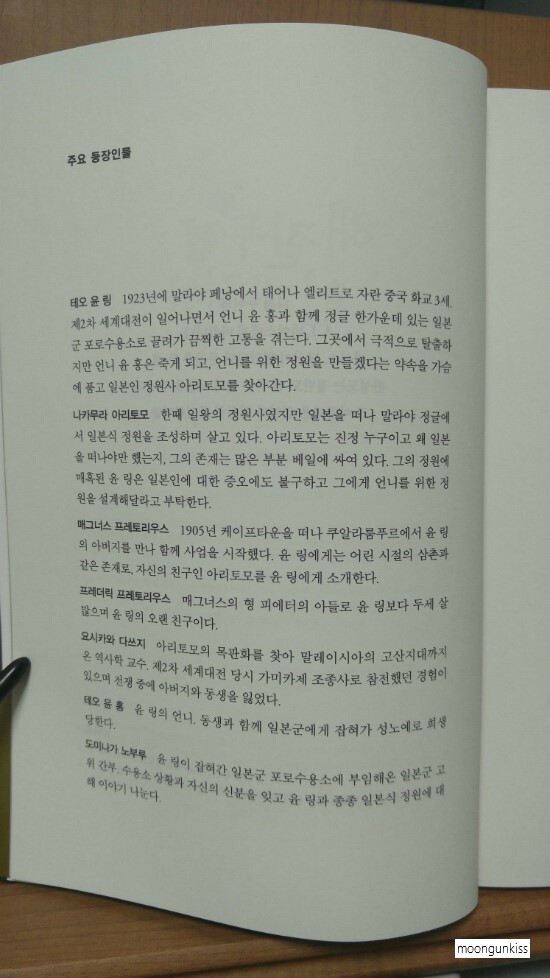 주요 등장인물
테오 윤 링 1923년에 말라야 페낭에서 태어나 엘리트로 자란 중국 화교 3세.
제2차 세계대전이 일어나면서 언니 윤 홍과 함께 정글 한가운데 있는 일본
군 포로수용소로 끌려가 끔찍한 고통을 겪는다. 그곳에서 극적으로 탈출하
지만 언니 윤 홍은 죽게 되고, 언니를 위한 정원을 만들겠다는 약속을 가슴
에 품고 일본인 정원사 아리토모를 찾아간다.
나카무라 아리토모 한때 일왕의 정원사였지만 일본을 떠나 말라야 정글에
서 일본식 정원을 조성하며 살고 있다. 아리토모는 진정 누구이고 왜 일본
을 떠나야만 했는지, 그의 존재는 많은 부분 베일에 싸여 있다. 그의 정원에
매혹된 윤 링은 일본인에 대한 증오에도 불구하고 그에게 언니를 위한 정
원을 설계해달라고 부탁한다.
매그너스 프레토리우스 1905년 케이프타운을 떠나 쿠알라룸푸르에서 윤 링
의 아버지를 만나 함께 사업을 시작했다. 윤 링에게는 어린 시절의 삼촌과
같은 존재로, 자신의 친구인 아리토모를 윤 링에게 소개한다.
프레더릭 프레토리우스 매그너스의 형 피에터의 아들로 윤 링보다 두세 살
많으며 윤 링의 오랜 친구이다.
요시카와 다쓰지 아리토모의 목판화를 찾아 말레이시아의 고산지대까지
온 역사학 교수. 제2차 세계대전 당시 가미카제 조종사로 참전했던 경험이
있으며 전쟁 중에 아버지와 동생을 잃었다.
테오 윤 홍 윤 링의 언니. 동생과 함께 일본군에게 잡혀가 성노예로 희생
당한다.
도미나가 노부루 윤 링이 잡혀간 일본군 포로수용소에 부임해온 일본군 고
위 간부. 수용소 상황과 자신의 신분을 잊고 윤 링과 종종 일본식 정원에 대
해 이야기 나눈다.
moongunkiss